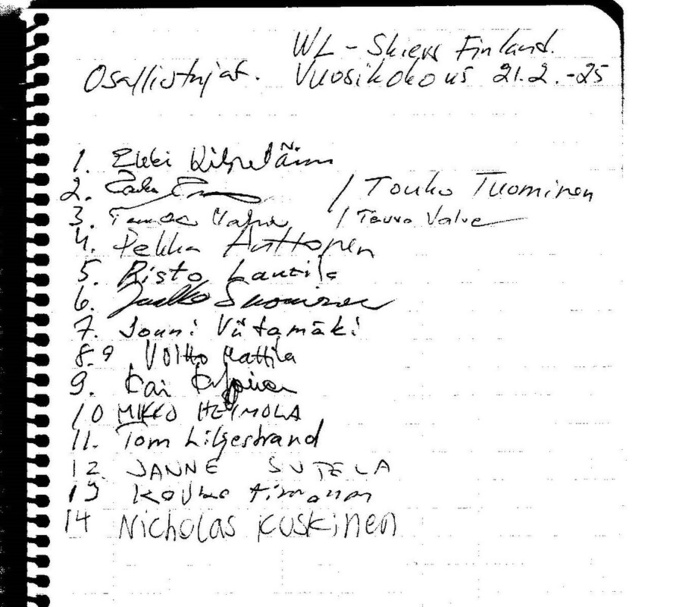 WL-Skiers Finland.
Osallistujat. Vuosikokous 21.2.-25
1. Erkki
2. / Touko Tuominen
3. / Teuvo Valve
4. Pekka Anttonen
5. Risto Lantila
6. Suominen
7. Jouni Viitamäki
8. Voitto Mattila
9. Kai
10 MIKKO HEIMOLA
11. Tom Liljestrand
12. JANNE SUTELA
13 Kouko Timonen
14 Nicholas Kuskinen